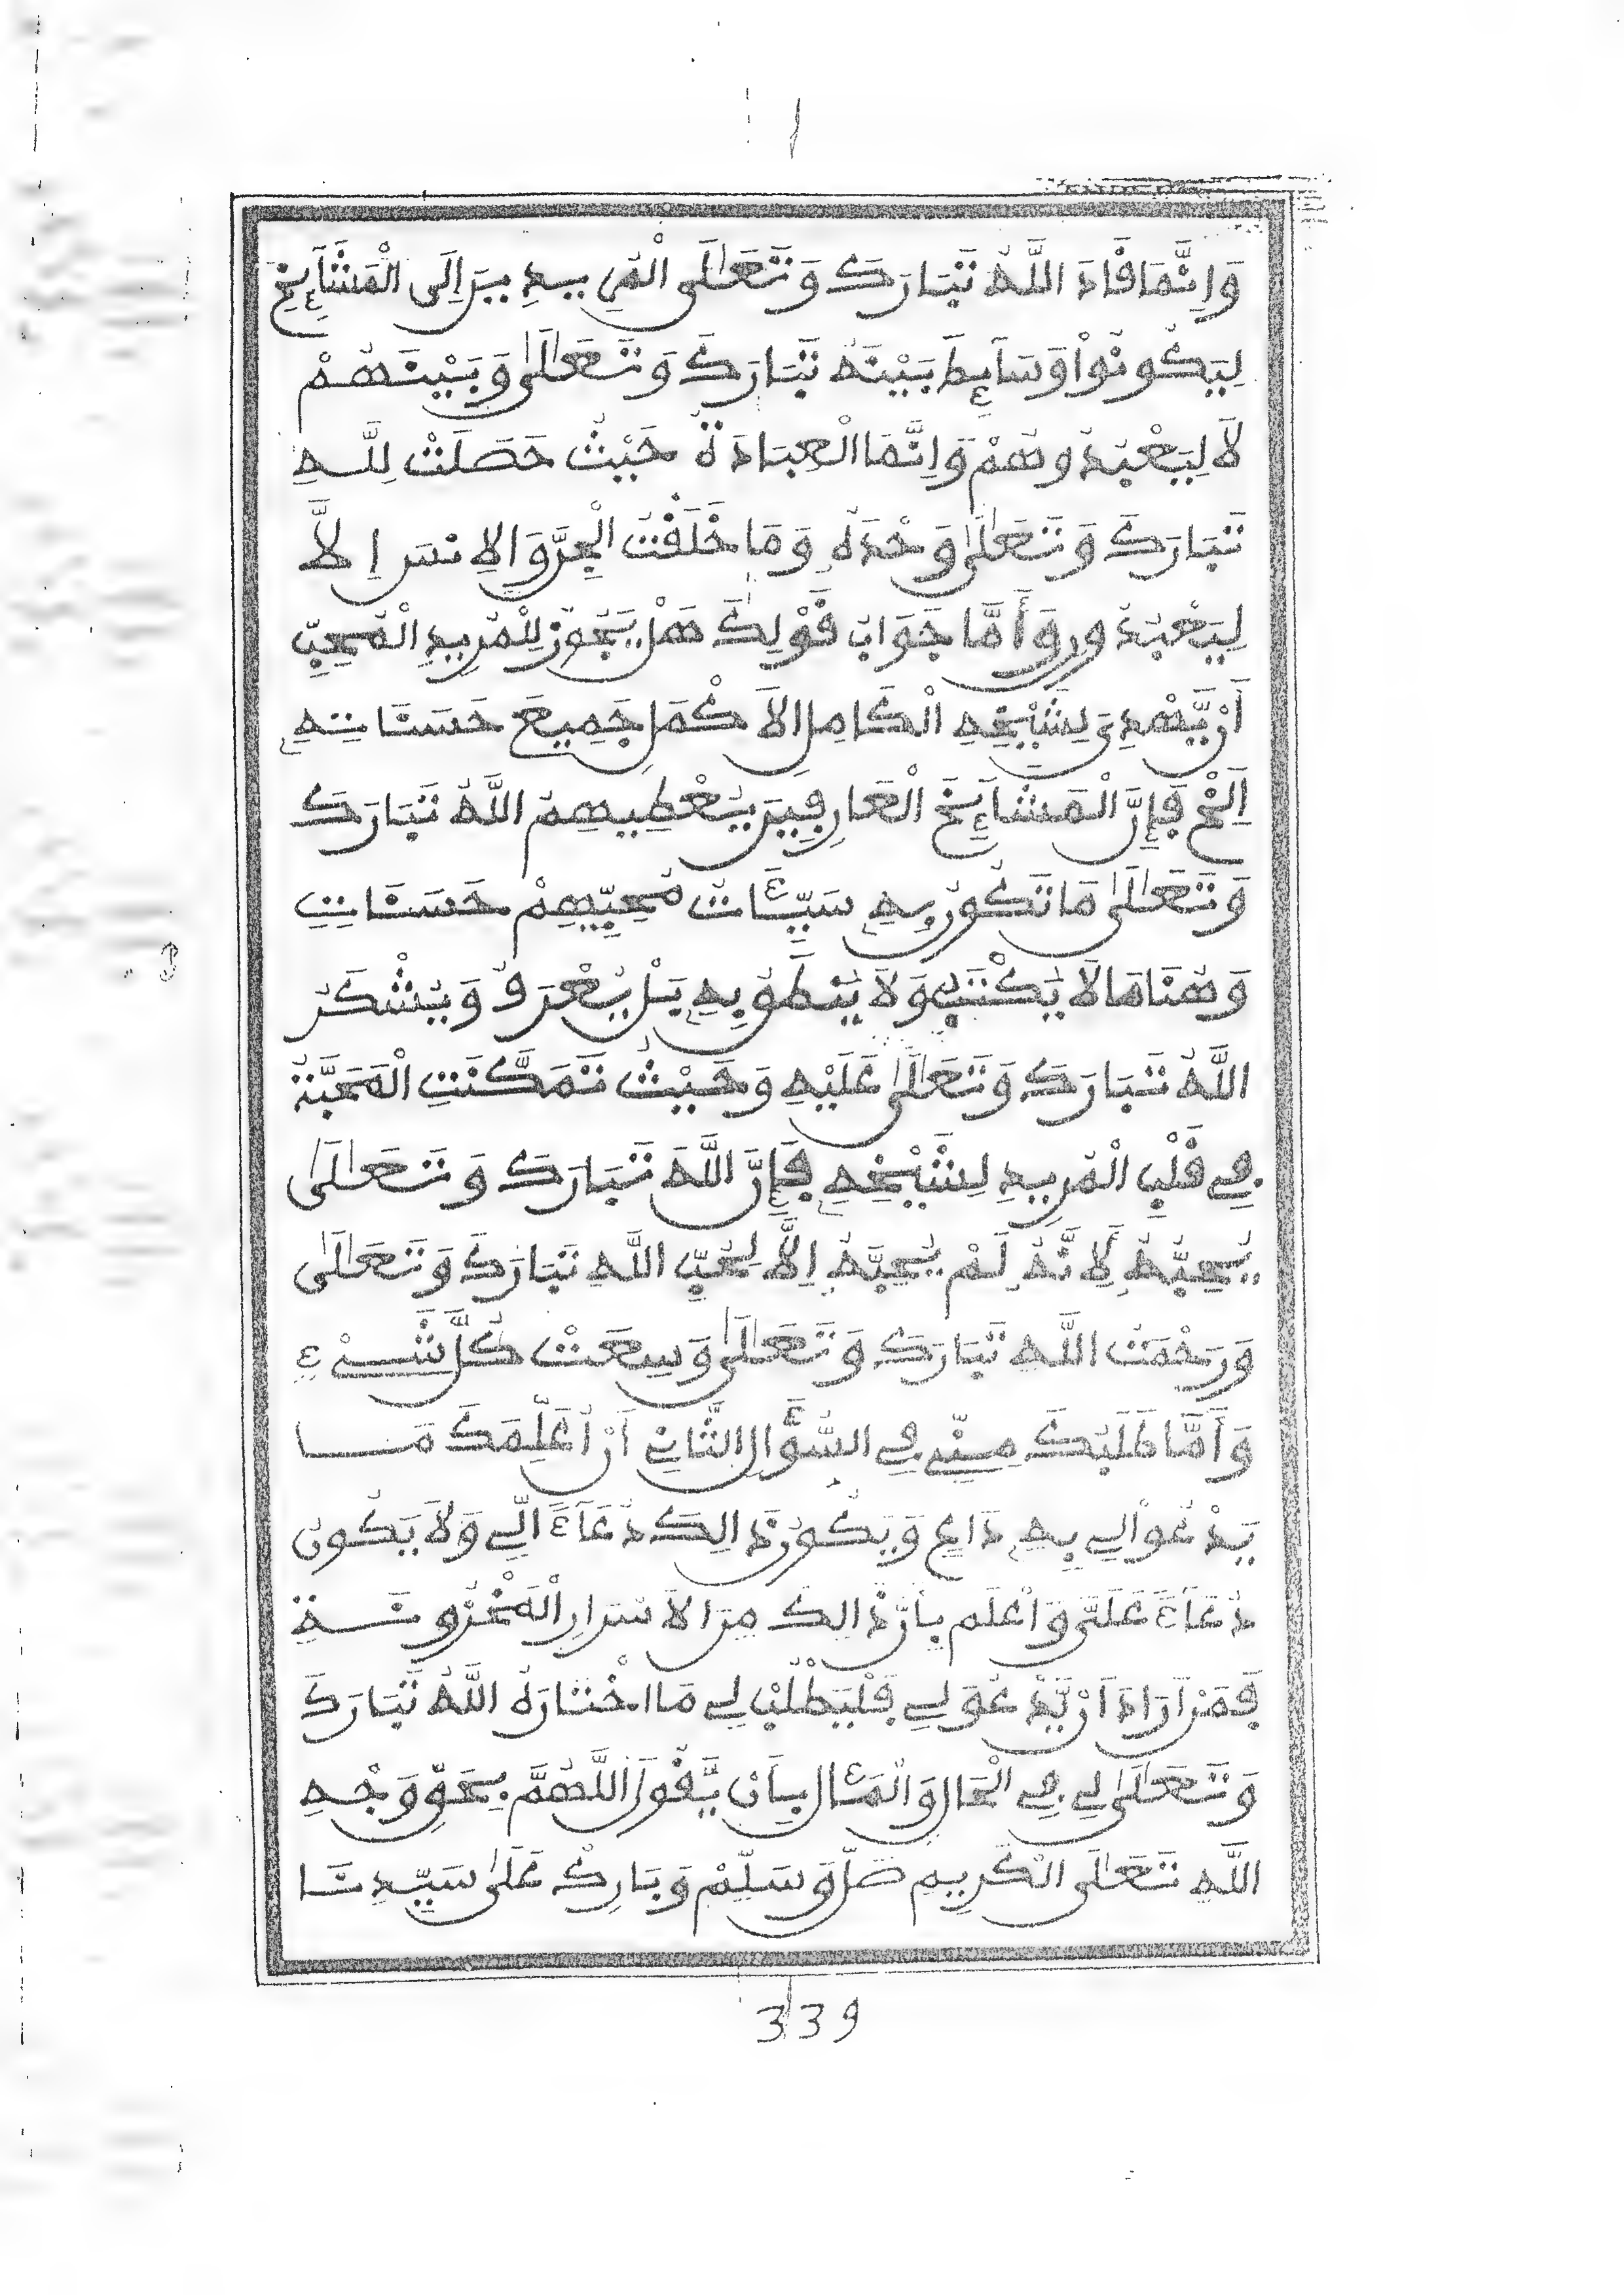 وَإِنَّمَا قَادَ اللَّهُ تَبَارَكَ وَتَعَالَى الْمُرِيدِينَ إِلَى الْمَشَآئِخِ
لِيَكُونُواْ وَسَآئِطَ بَيْنَهُ تَبَارَكَ وَتَعَالَى وَبَيْنَهُمْ
لَا لِيَعْبُدُوهُمْ وَإِنَّمَا الْعِبَادَةُ حَيْثُ حَصَلَتْ لِلَّهِ
تَبَارَكَ وَتَعَالَى وَحْدَهُ وَمَا خَلَقْتُ الْجِنَّ وَالْإِنسَ إِلَّا
لِيَعْبُدُونِ وَأَمَّا جَوَابُ قَوْلِكَ هَلْ يَجُوزُ لِلْمُرِيدِ الْمُحِبِّ
أَنْ يُّهْدِىَ لِشَيْخِهِ الْكَامِلِ الْأَكْمَلِ جَمِيعَ حَسَنَاتِهِ
إِلَخْ فَإِنَّ الْمَشَآئِخَ الْعَارِفِينَ يُعْطِيهِمُ اللَّهُ تَبَارَكَ
وَتَعَالَى مَا تَكُونُ بِهِ سَيِّئَاتُ مُحِبِّيهِمْ حَسَنَاتٍ
وَهُنَا مَا لَا يُكْتَبُ وَلَا يُنْطَقُ بِهِ بَلْ يُعْرَفُ وَيُشْكَرُ
اللَّهُ تَبَارَكَ وَتَعَالَى عَلَيْهِ وَحَيْثُ تَمَكَّنَتِ الْمَحَبَّةُ
فِي قَلْبِ الْمُرِيدِ لِشَيْخِهِ فَإِنَّ اللَّهَ تَبَارَكَ وَتَعَالَى
يُحِبُّهُ لِأَنَّهُ لَمْ يُحِبَّهُ إِلَّا لِحُبِّ اللَّهِ تَبَارَكَ وَتَعَالَى
وَرَحْمَتُ اللَّهِ تَبَارَكَ وَتَعَالَى وَسِعَتْ كُلَّ شَيْءٍ
وَأَمَّا طَلَبُكَ مِنِّي فِي السُّؤَالِ الثَّانِي أَنْ أُعَلِّمَكَ مَا
يَدْعُو لِي بِهِ دَاعٍ وَيَكُونُ ذَالِكَ دُعَآءً لِي وَلَا يَكُونُ
دُعَآءً عَلَيَّ وَاعْلَم بِأَنَّ ذَالِكَ مِنَ الْأَسْرَارِ الْمَخْزُونَةِ
فَمَنْ أَرَادَ أَنْ يَّدْعُوَ لِي فَلْيَطْلُبْ لِي مَا اخْتَارَهُ اللَّهُ تَبَارَكَ
وَتَعَالَى لِي فِي الْحَالِ وَالْمَئَالِ بِأَنْ يَّقُولَ اللَّهُمَّ بِحَقِّ وَجْهِ
اللَّهِ تَعَالَى الْكَرِيمِ صَلِّ وَسَلِّمْ وَبَارِكْ عَلَى سَيِّدِنَا
339